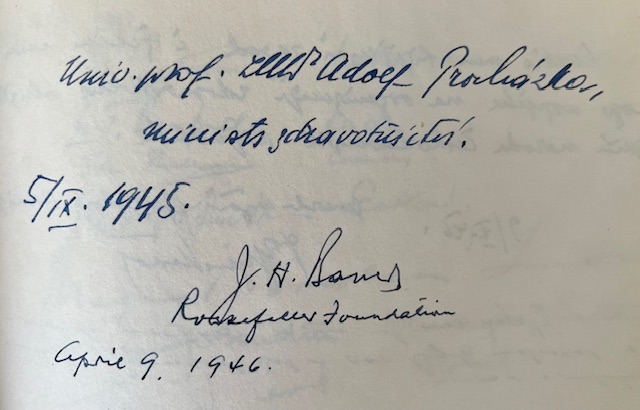 Univ. prof. JUDr Adolf Procházka,
ministr zdravotnictví.
5/IX. 1945.
J. H. Bauer
Rockefeller Foundation
April 9, 1946.